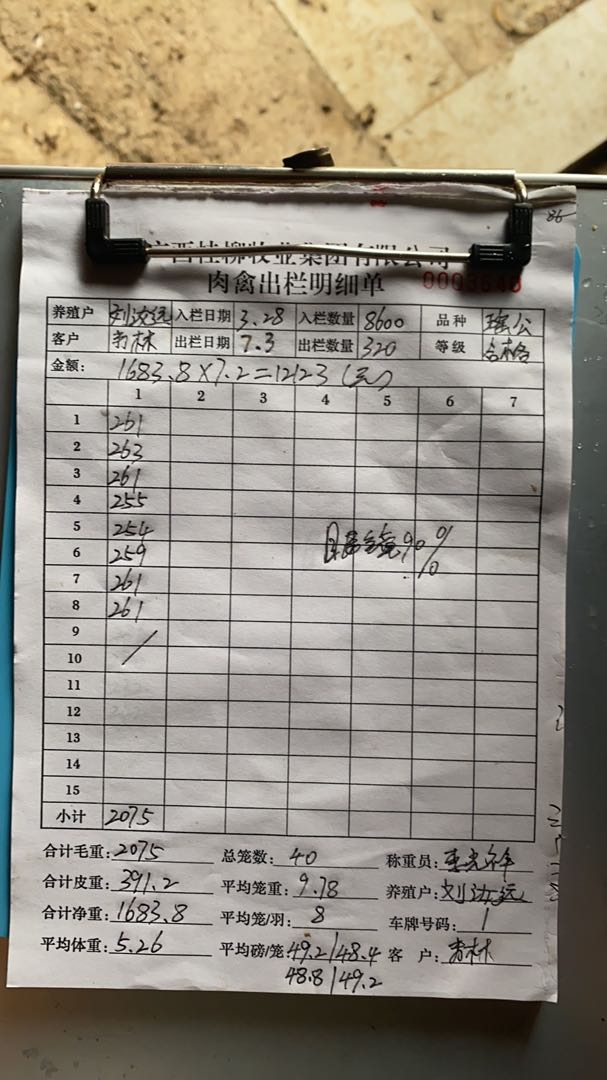 广西桂柳牧业集团有限公司
肉禽出栏明细单 0003640
养殖户 入栏日期 3.28 入栏数量 8600 品种 瑶公
客户 林 出栏日期 7.3 出栏数量 320 等级 合格
金额: 1683.8×7.2=12123(元)
1 2 3 4 5 6 7
1 261
2 263
3 261
4 255
5 254
6 259 90%
7 261
8 261
9
10
11
12
13
14
15
小计 2075
合计毛重: 2075 总笼数: 40 称重员:
合计皮重: 391.2 平均笼重: 9.78 养殖户:
合计净重: 1683.8 平均笼/羽: 8 车牌号码: 1
平均体重: 5.26 平均磅/笼 49.2/48.4 客 户: 林
48.8/49.2